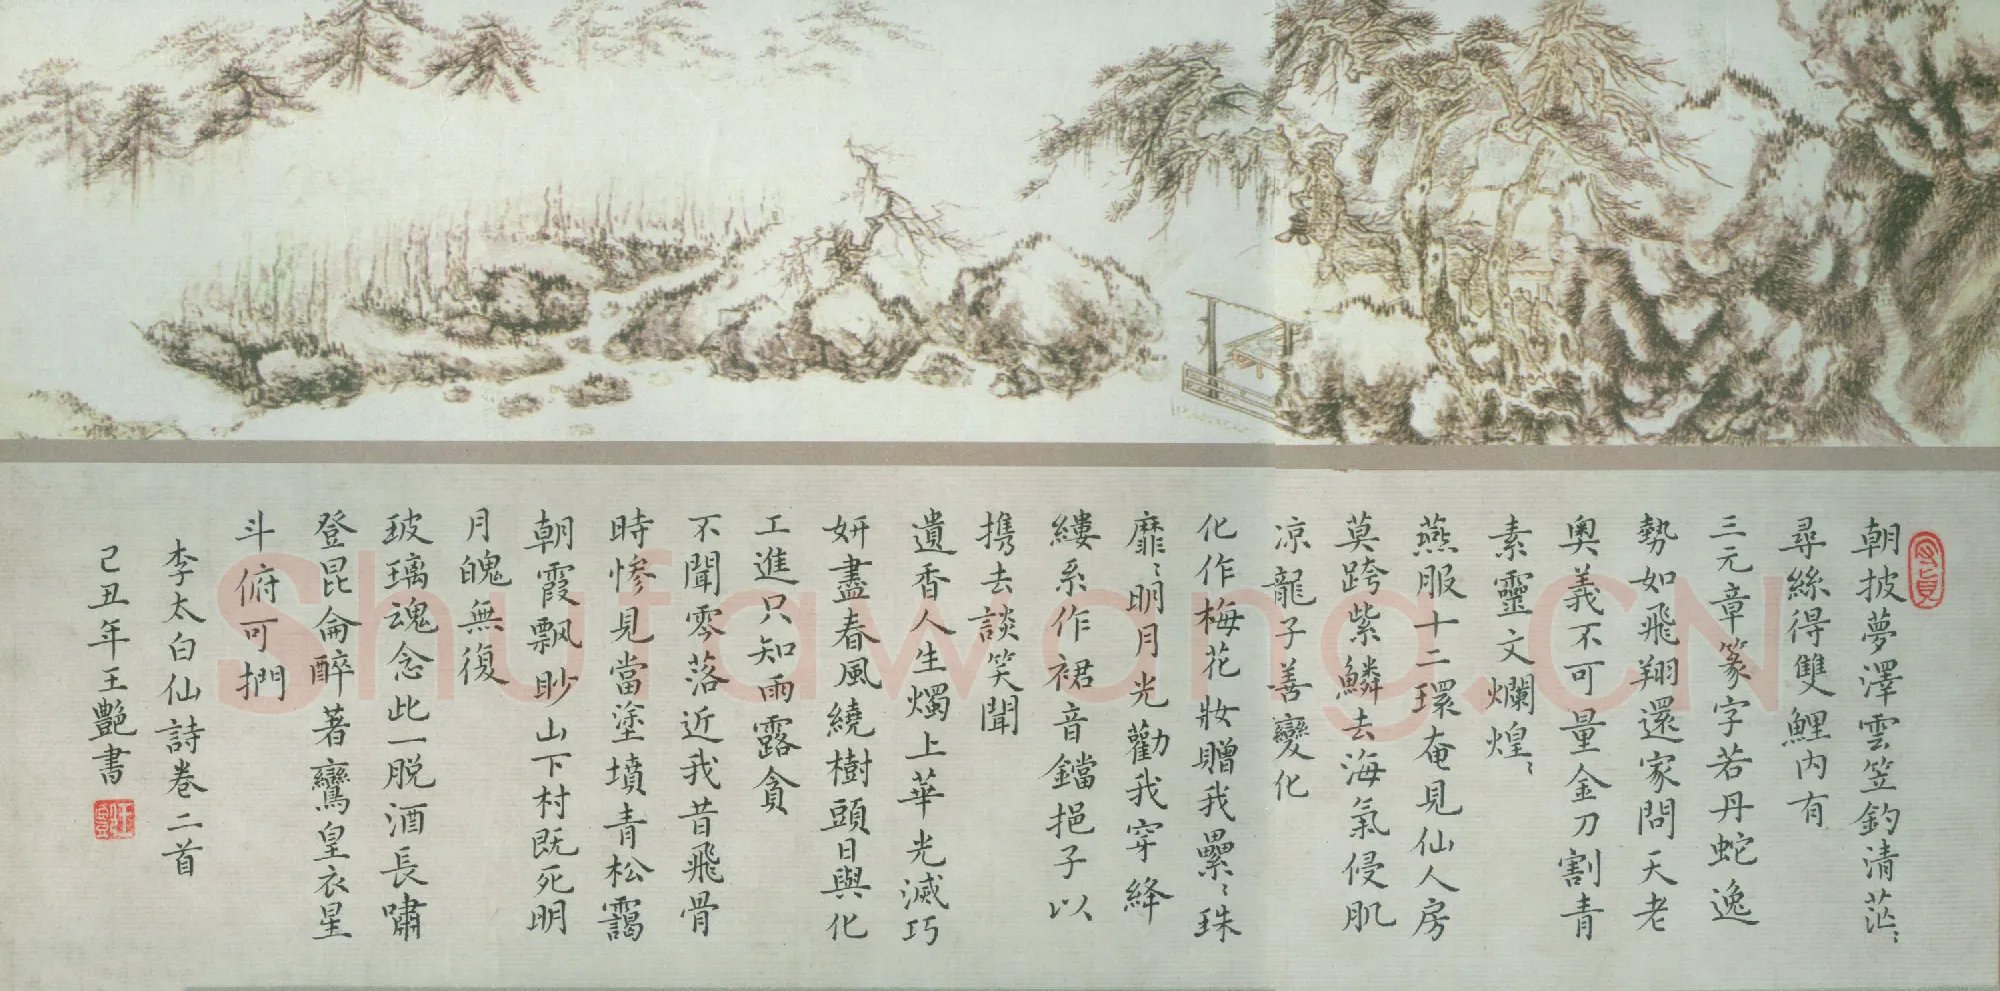 朝披夢澤雲笠釣清茫〻
尋絲得雙鯉内有
三元章篆字若丹蛇逸
勢如飛翔還家問天老
奥義不可量金刀割青
素靈文爛煌〻
燕服十二環奄見仙人房
莫跨紫鱗去海氣侵肌
凉龍子善變化
化作梅花妝贈我纍〻珠
靡〻明月光勸我穿絳
縷系作裙音鐺挹子以
携去談笑聞
遺香人生燭上華光滅巧
妍盡春風繞樹頭日與化
工進只知雨露貪
不聞零落近我昔飛骨
時慘見當塗墳青松靄
朝霞飄眇山下村既死明
月魄無復
玻璃魂念此一脱酒長嘯
登昆侖醉著鸞皇衣星
斗俯可捫
李太白仙詩卷二首
己丑年王艷書
Shufawang.CN